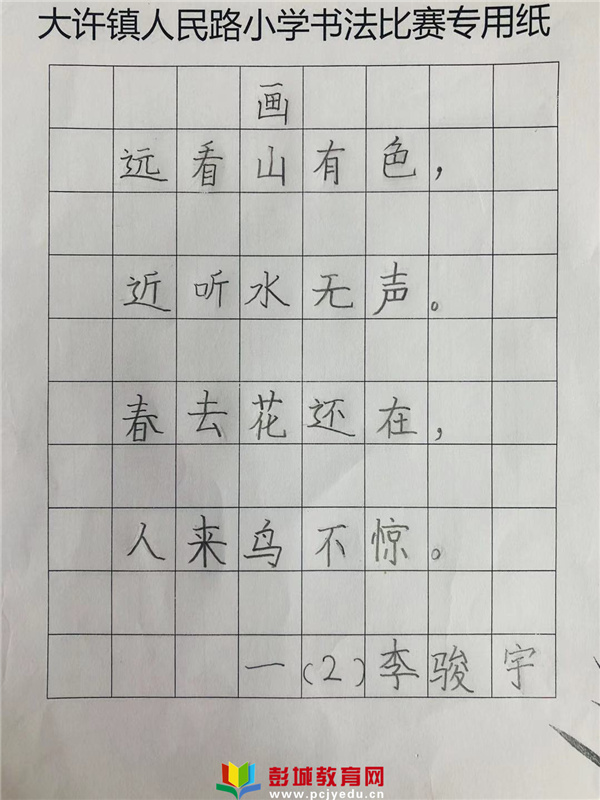 大许镇人民路小学书法比赛专用纸
画
远看山有色，
近听水无声。
春去花还在，
人来鸟不惊。
一（2）李骏宇
彭城教育网
www.pcjyedu.cn